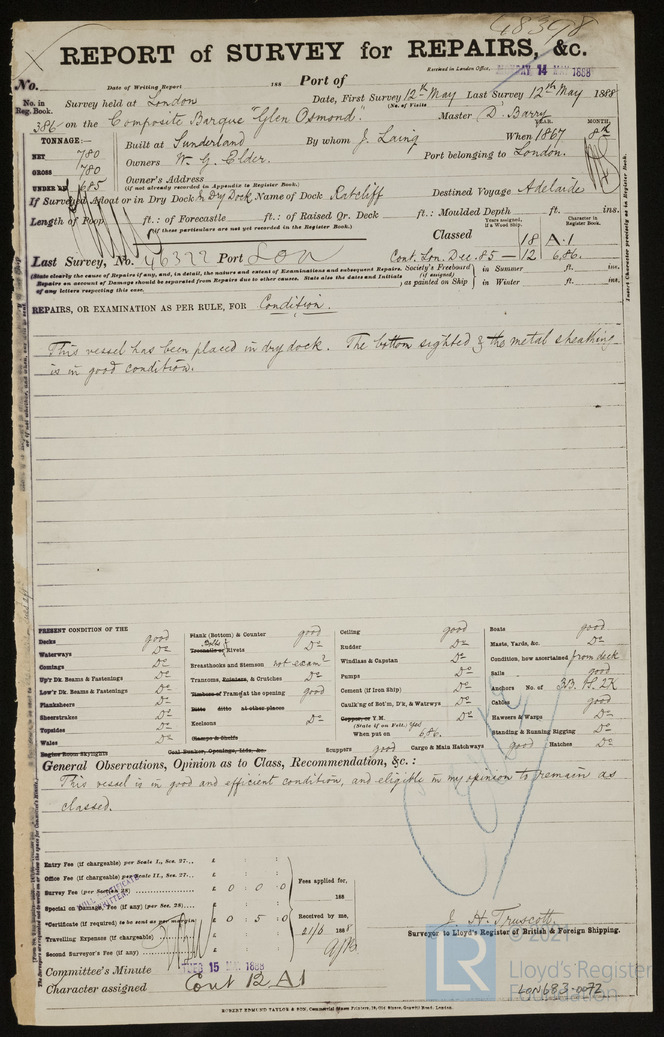 48398
REPORT of SURVEY for REPAIRS, &c.
Received in London Office, MONDAY 14 MAY 1888
No. Date of Writing Report 188 Port of
No. in Reg. Book. Survey held at London Date, First Survey 12th May Last Survey 12th May 1888
(No. of Visits
386 on the Composite Barque "Glen Osmond." Master D. Barry
TONNAGE:— Built at Sunderland By whom J. Laing When 1867 YEAR. MONTH. 8th
NET 780
GROSS 780 Owners W. G. Elder. Port belonging to London.
UNDER DK. 685 Owner's Address
(if not already recorded in Appendix to Register Book.)
If Surveyed Afloat or in Dry Dock In Dry Dock Name of Dock Ratcliff Destined Voyage Adelaide
Length of Poop ft.: of Forecastle ft.: of Raised Qr. Deck ft.: Moulded Depth ft. ins.
(If these particulars are not yet recorded in the Register Book.)
Years assigned, if a Wood Ship. Character in Register Book.
Classed 18 A.1
Last Survey, No. 46322 Port Lon Cont. Lon. Dec. 85 — 12 6,86.
(State clearly the cause of Repairs if any, and, in detail, the nature and extent of Examinations and subsequent Repairs.
Repairs on account of Damage should be separated from Repairs due to other causes. State also the dates and initials
of any letters respecting this case.
Society's Freeboard (if assigned) as painted on Ship in Summer ft. ins.
in Winter ft. ins.
REPAIRS, OR EXAMINATION AS PER RULE, FOR Condition.
This vessel has been placed in dry dock. The bottom sighted & the metal sheathing
is in good condition.
PRESENT CONDITION OF THE
Decks good
Waterways Do
Comings Do
Up'r Dk. Beams & Fastenings Do
Low'r Dk. Beams & Fastenings Do
Planksheers Do
Sheerstrakes Do
Topsides Do
Wales Do
Engine Room Skylights
Plank (Bottom) & Counter good
Bolts & Treenails or Rivets Do
Breasthooks and Stemson not examd
Transoms, Pointers, & Crutches Do
Timbers of Frame at the opening good
Ditto ditto at other places
Keelsons Do
Clamps & Shelfs
Coal Bunker, Openings, Lids, &c.
Ceiling good
Rudder Do
Windlass & Capstan Do
Pumps Do
Cement (if Iron Ship) Do
Caulk'ng of Bot'm, D'k, & Watrwys Do
Copper, or Y.M. Do
(State if on Felt.) Yes
When put on 6,86.
Scuppers good Cargo & Main Hatchways good Hatches Do
Boats good
Masts, Yards, &c. Do
Condition, how ascertained from deck
Sails good
Anchors No. of 3B. 1S. 2K
Cables good
Hawsers & Warps Do
Standing & Running Rigging Do
General Observations, Opinion as to Class, Recommendation, &c. :
This vessel is in good and efficient condition, and eligible in my opinion to remain as
classed.
Entry Fee (if chargeable) per Scale I., Sec. 27... £ : :
Office Fee (if chargeable) per Scale II., Sec. 27... £ : :
Survey Fee (per Section 28) £ 0 : 0 : 0
Special on Damage Fee (if any) (per Sec. 28) £ : :
*Certificate (if required) to be sent as per margin £ 0 : 5 : 0
Travelling Expenses (if chargeable) £ : :
Second Surveyor's Fee (if any) £ : :
Fees applied for,
188
Received by me,
21/6 1888
J. H. Truscott
Surveyor to Lloyd's Register of British & Foreign Shipping.
Committee's Minute TUES 15 MAY 1888
Character assigned Cont 12 A1
ROBERT EDMUND TAYLOR & SON, Commercial Steam Printers, 19, Old Street, Goswell Road, London.
© 2021
LR
Lloyd's Register
Foundation
LON683-0072